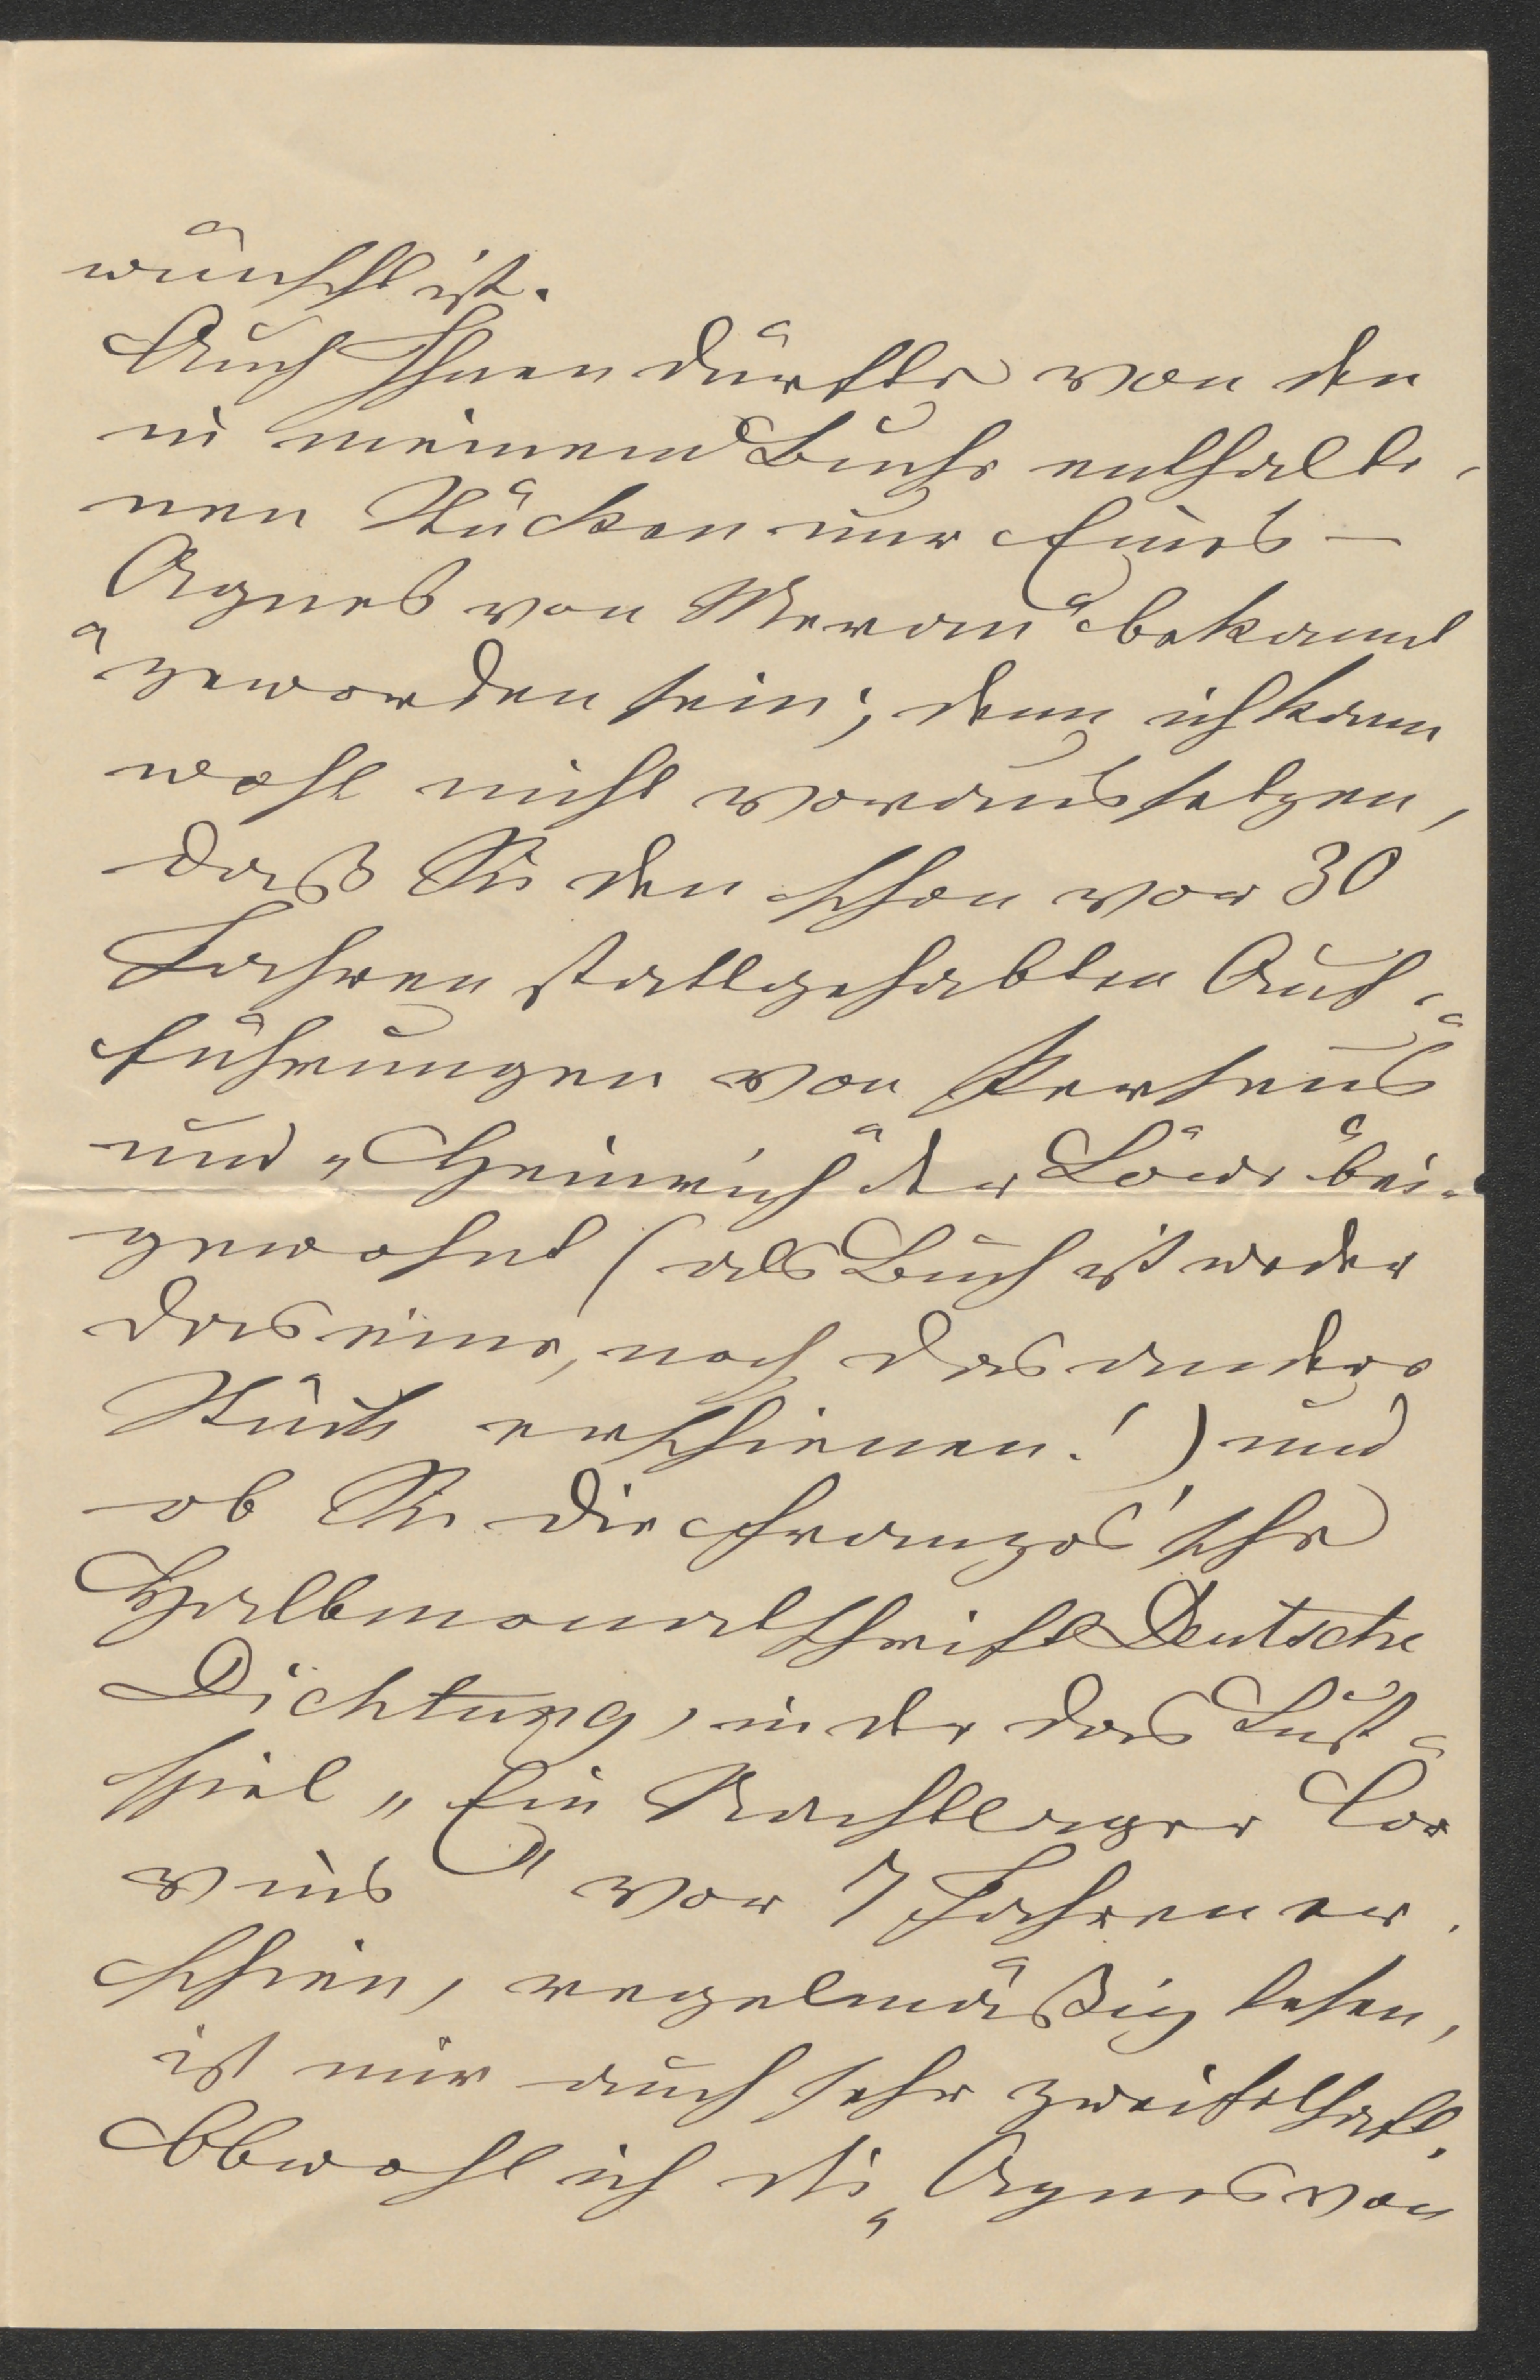 wünscht ist.
Auch Ihnen dürfte von den
in meinem Buche enthalte-
nen Stücken nur Eines –
„Agnes von Meran“ bekannt
geworden sein; denn ich kann
wohl nicht voraussetzen,
daß Sie den schon vor 30
Jahren stattgehabten Auf-
führungen von „Perseus“
und „Heinrich der Löwe“ bei-
gewohnt (als Buch ist weder
das eine, noch das andere
Stück erschienen!) und
ob Sie die Franzos'sche
Halbmonatschrift Deutsche
Dichtung, in der das Lust-
spiel „Ein Nachtlager Cor
vins“ vor 7 Jahren er-
schien, regelmäßig lesen,
ist mir auch sehr zweifelhaft.
Obwohl ich die „Agnes von